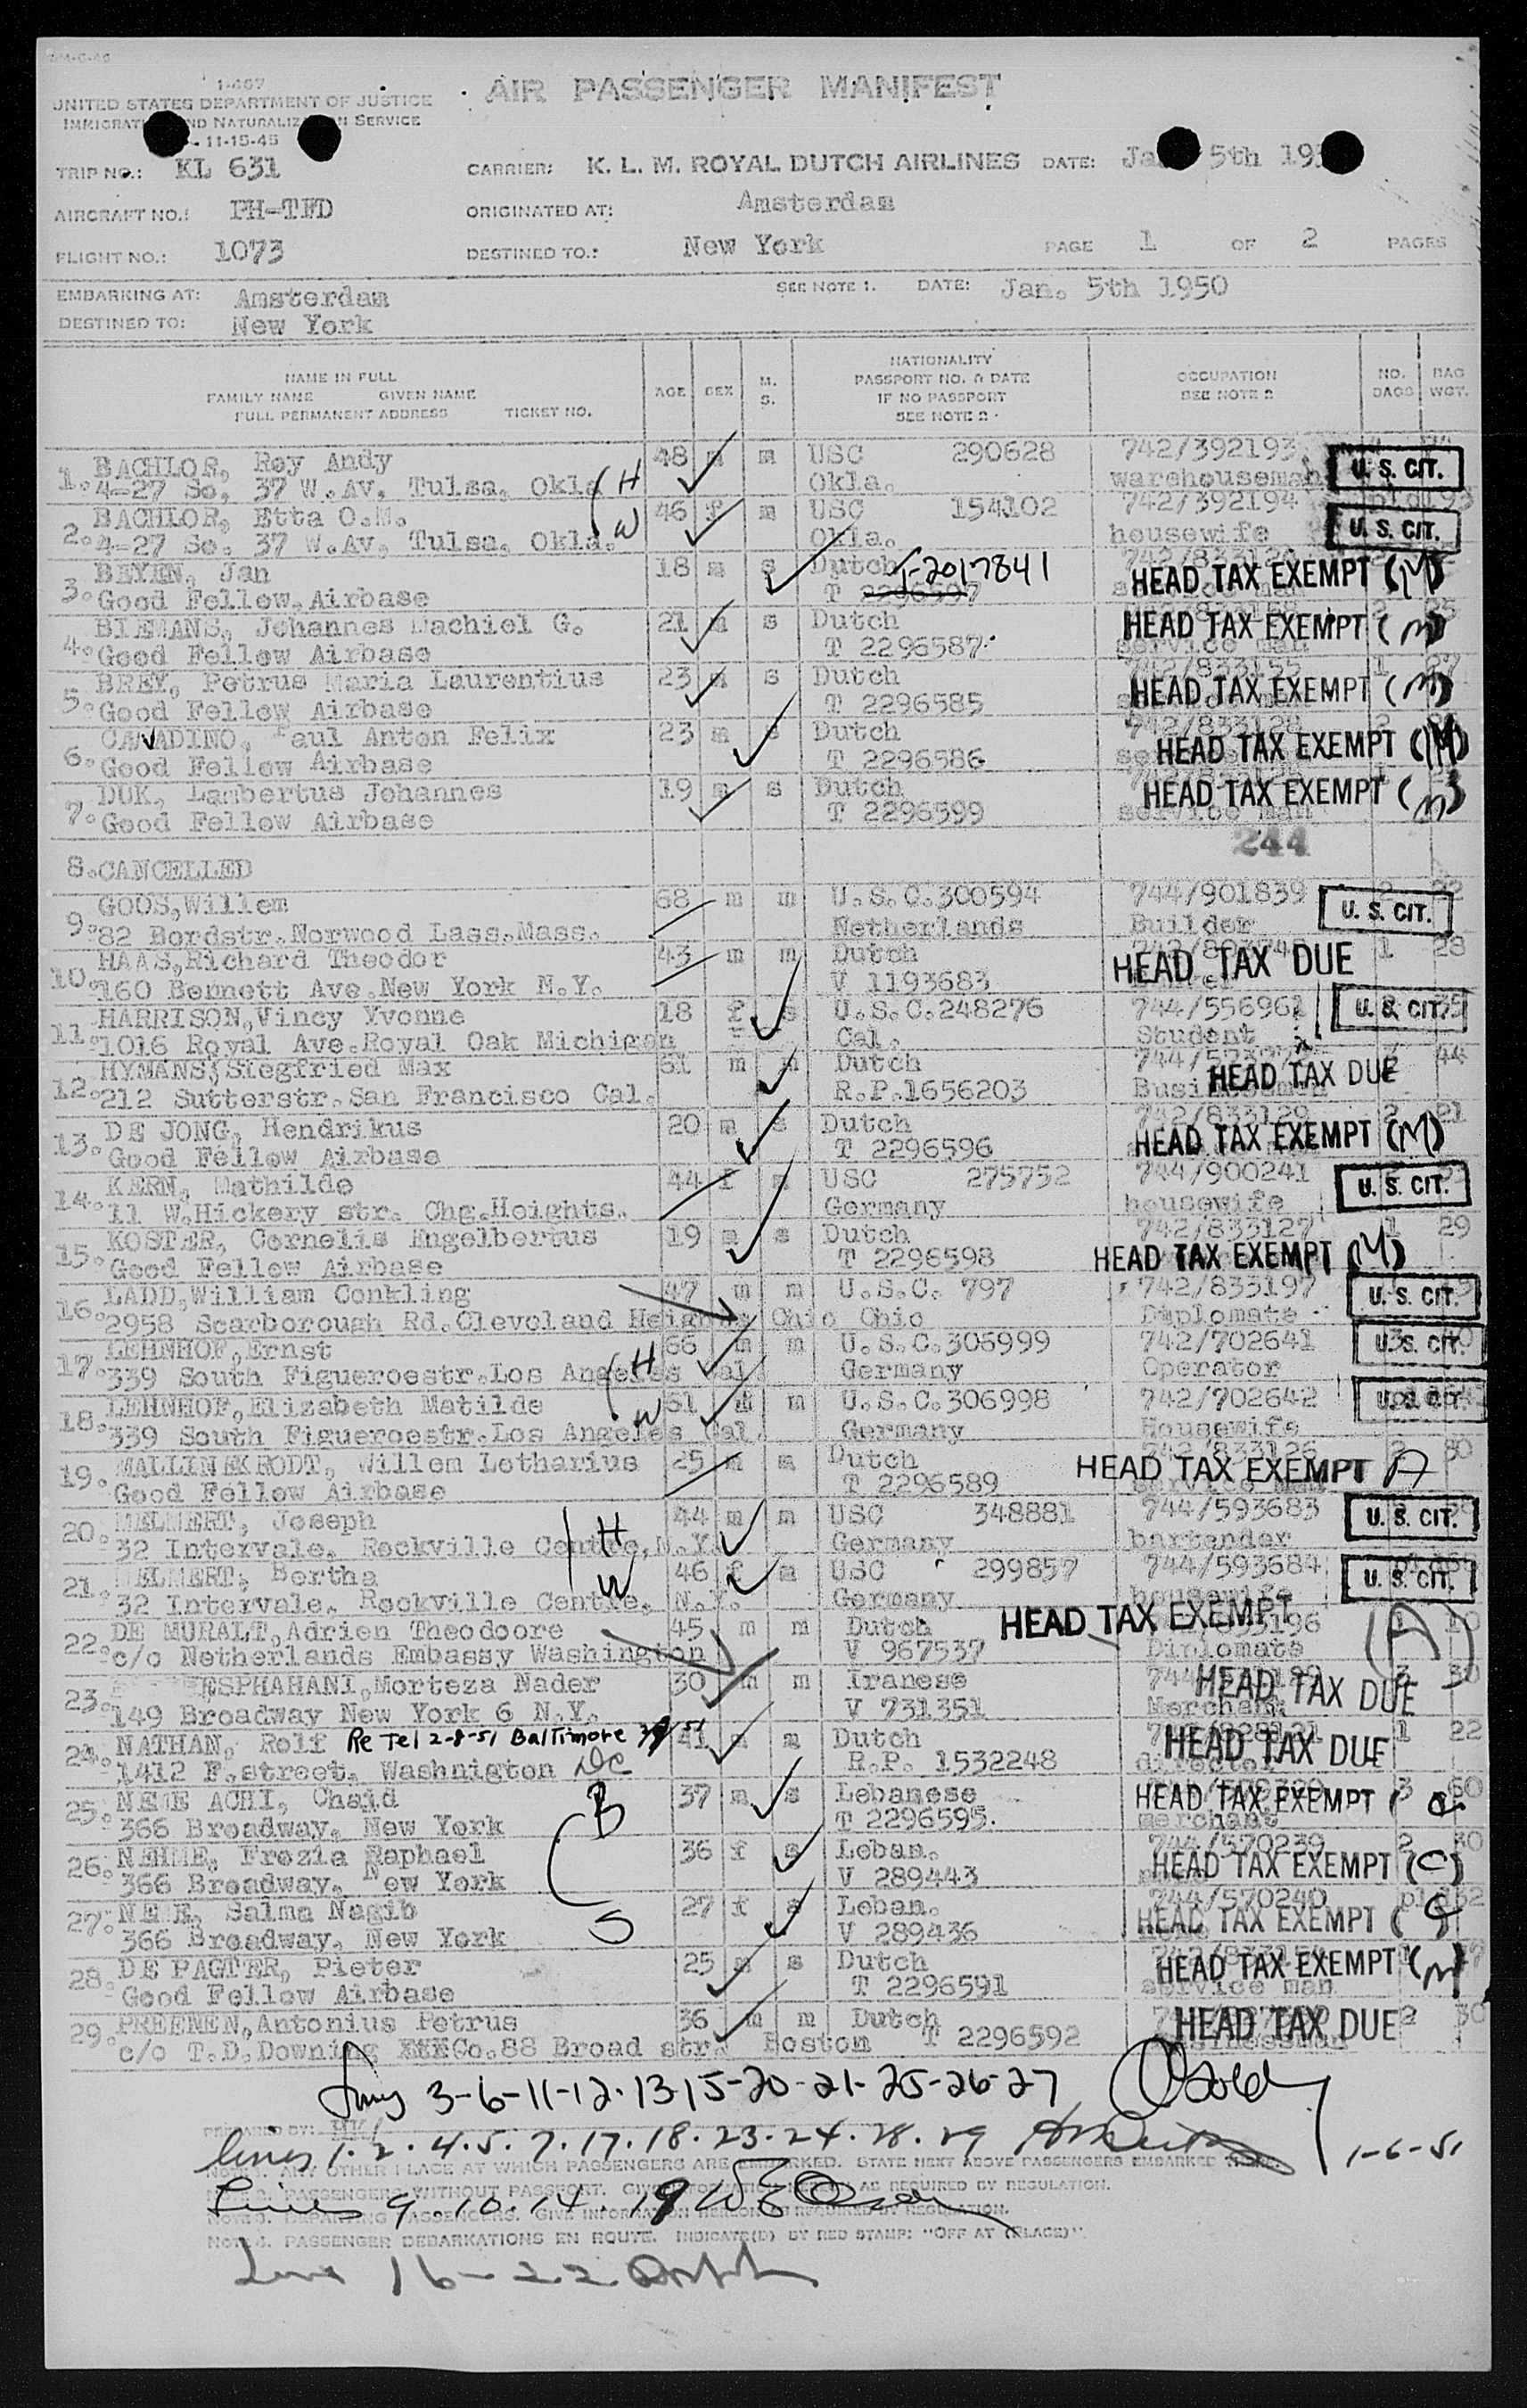 I-467
UNITED STATES DEPARTMENT OF JUSTICE
AIR PASSENGER MANIFEST
11-15-45
TRIP NO.: KL 631 CARRIER: K. L. M. ROYAL DUTCH AIRLINES DATE: 5th
AIRCRAFT NO.: PH-TFD ORIGINATED AT: Amsterdam
FLIGHT NO.: 1073 DESTINED TO.: New York PAGE 1 OF 2 PAGES
EMBARKING AT: Amsterdam SEE NOTE 1. DATE: Jan. 5th 1950
DESTINED TO: New York
NAME IN FULL
FAMILY NAME GIVEN NAME
FULL PERMANENT ADDRESS TICKET NO.
AGE SEX M. S.
NATIONALITY
PASSPORT NO. & DATE
IF NO PASSPORT
SEE NOTE 2
OCCUPATION
SEE NOTE 2
NO. BAGS BAG WGT.
1. BACHLOR, Roy Andy 48 m m USC 290628 742/392193
4-27 So, 37 W.Av, Tulsa, Okla H Okla. warehouseman U. S. CIT.
2. BACHLOR, Etta O.M. 46 f m USC 154102 742/392194
4-27 So. 37 W.Av, Tulsa, Okla. W Okla. housewife U. S. CIT.
3. BEYEN, Jan 18 m s Dutch T-2017841
Good Fellow, Airbase T 2296597 HEAD TAX EXEMPT (M)
4. BIEMANS, Johannes Machiel G. 21 m s Dutch
Good Fellow Airbase T 2296587 service man HEAD TAX EXEMPT (M)
5. BREY, Petrus Maria Laurentius 23 m s Dutch 742/833155 1 27
Good Fellow Airbase T 2296585 HEAD TAX EXEMPT (M)
6. CANADINO, Paul Anton Felix 23 m s Dutch 742/833128 2
Good Fellow Airbase T 2296586 HEAD TAX EXEMPT (M)
7. DUK, Lambertus Johannes 19 m s Dutch
Good Fellow Airbase T 2296599 service man HEAD TAX EXEMPT (M)
244
8. CANCELLED
9. GOOS, Willem 68 m m U.S.C. 300594 744/901839 2 22
82 Bordstr. Norwood Lass. Mass. Netherlands Builder U. S. CIT.
10. HAAS, Richard Theodor 43 m m Dutch 1 28
160 Bennett Ave. New York N.Y. V 1193683 HEAD TAX DUE
11. HARRISON, Vincy Yvonne 18 f s U.S.C. 248276 744/556961
1016 Royal Ave. Royal Oak Michigan Cal. Student U. S. CIT.
12. HYMANS, Siegfried Max 61 m m Dutch 44
212 Sutterstr. San Francisco Cal. R.P. 1656203 Businessman HEAD TAX DUE
13. DE JONG, Hendrikus 20 m s Dutch 742/833129 2 21
Good Fellow Airbase T 2296596 HEAD TAX EXEMPT (M)
14. KERN, Mathilde 44 f m USC 275752 744/900241
11 W. Hickery str. Chg. Heights. Germany housewife U. S. CIT.
15. KOSTER, Cornelis Engelbertus 19 m s Dutch 742/833127 1 29
Good Fellow Airbase T 2296598 HEAD TAX EXEMPT (M)
16. LADD, William Conkling 47 m m U.S.C. 797 742/833197
2958 Scarborough Rd. Cleveland Heights Ohio Ohio Diplomate U. S. CIT.
17. LEHNHOF, Ernst 66 m m U.S.C. 306999 742/702641
339 South Figueroestr. Los Angeles Cal. H Germany Operator U. S. CIT.
18. LEHNHOF, Elizabeth Matilde 61 m m U.S.C. 306998 742/702642
339 South Figueroestr. Los Angeles Cal. W Germany Housewife U. S. CIT.
19. MALLINEKRODT, Willem Lotharius 25 m m Dutch 742/833126 2 30
Good Fellow Airbase T 2296589 HEAD TAX EXEMPT A
20. MELMERT, Joseph 44 m m USC 348881 744/593683
32 Intervale, Rockville Centre, N.Y. H Germany bartender U. S. CIT.
21. MELMERT, Bertha 46 f m USC 299857 744/593684
32 Intervale, Rockville Centre, N.Y. W Germany housewife U. S. CIT.
22. DE MURALT, Adrien Theodoore 45 m m Dutch HEAD TAX EXEMPT (A) 1
c/o Netherlands Embassy Washington V 967537 Diplomate
23. ESPHAHANI, Morteza Nader 30 m m Iranese 3 30
149 Broadway New York 6 N.Y. V 731351 Merchant HEAD TAX DUE
24. NATHAN, Rolf Re Tel 2-8-51 Baltimore 41 m m Dutch 1 22
1412 F. street, Washnigton DC R.P. 1532248 director HEAD TAX DUE
25. NEME ACHI, Chaid B 37 m s Lebanese 3 60
366 Broadway, New York T 2296595. merchant HEAD TAX EXEMPT ( C
26. NEHME, Frezia Raphael 36 f s Leban. 744/570239 2 30
366 Broadway, New York V 289443 HEAD TAX EXEMPT (C)
27. NEME, Salma Nagib 27 f s Leban. 744/570240
366 Broadway, New York S V 289436 HEAD TAX EXEMPT ( C
28. DE PAGTER, Pieter 25 m s Dutch
Good Fellow Airbase T 2296591 service man HEAD TAX EXEMPT (M)
29. PREENEN, Antonius Petrus 36 m m Dutch 2 30
c/o T.D. Downing Co. 88 Broad str. Boston T 2296592 HEAD TAX DUE
3-6-11-12-13-15-20-21-25-26-27
PREPARED BY:
lines 1.2.4.5.7.17.18.23.24.28.29 1-6-51
NOTE 1. ANY OTHER PLACE AT WHICH PASSENGERS ARE EMBARKED. STATE NEXT ABOVE PASSENGERS EMBARKED
PASSENGERS WITHOUT PASSPORT. AS REQUIRED BY REGULATION.
Lines 9.10.14.19
NOTE 4. PASSENGER DEBARKATIONS EN ROUTE. INDICATE(D) BY RED STAMP: "OFF AT (PLACE)".
16-22